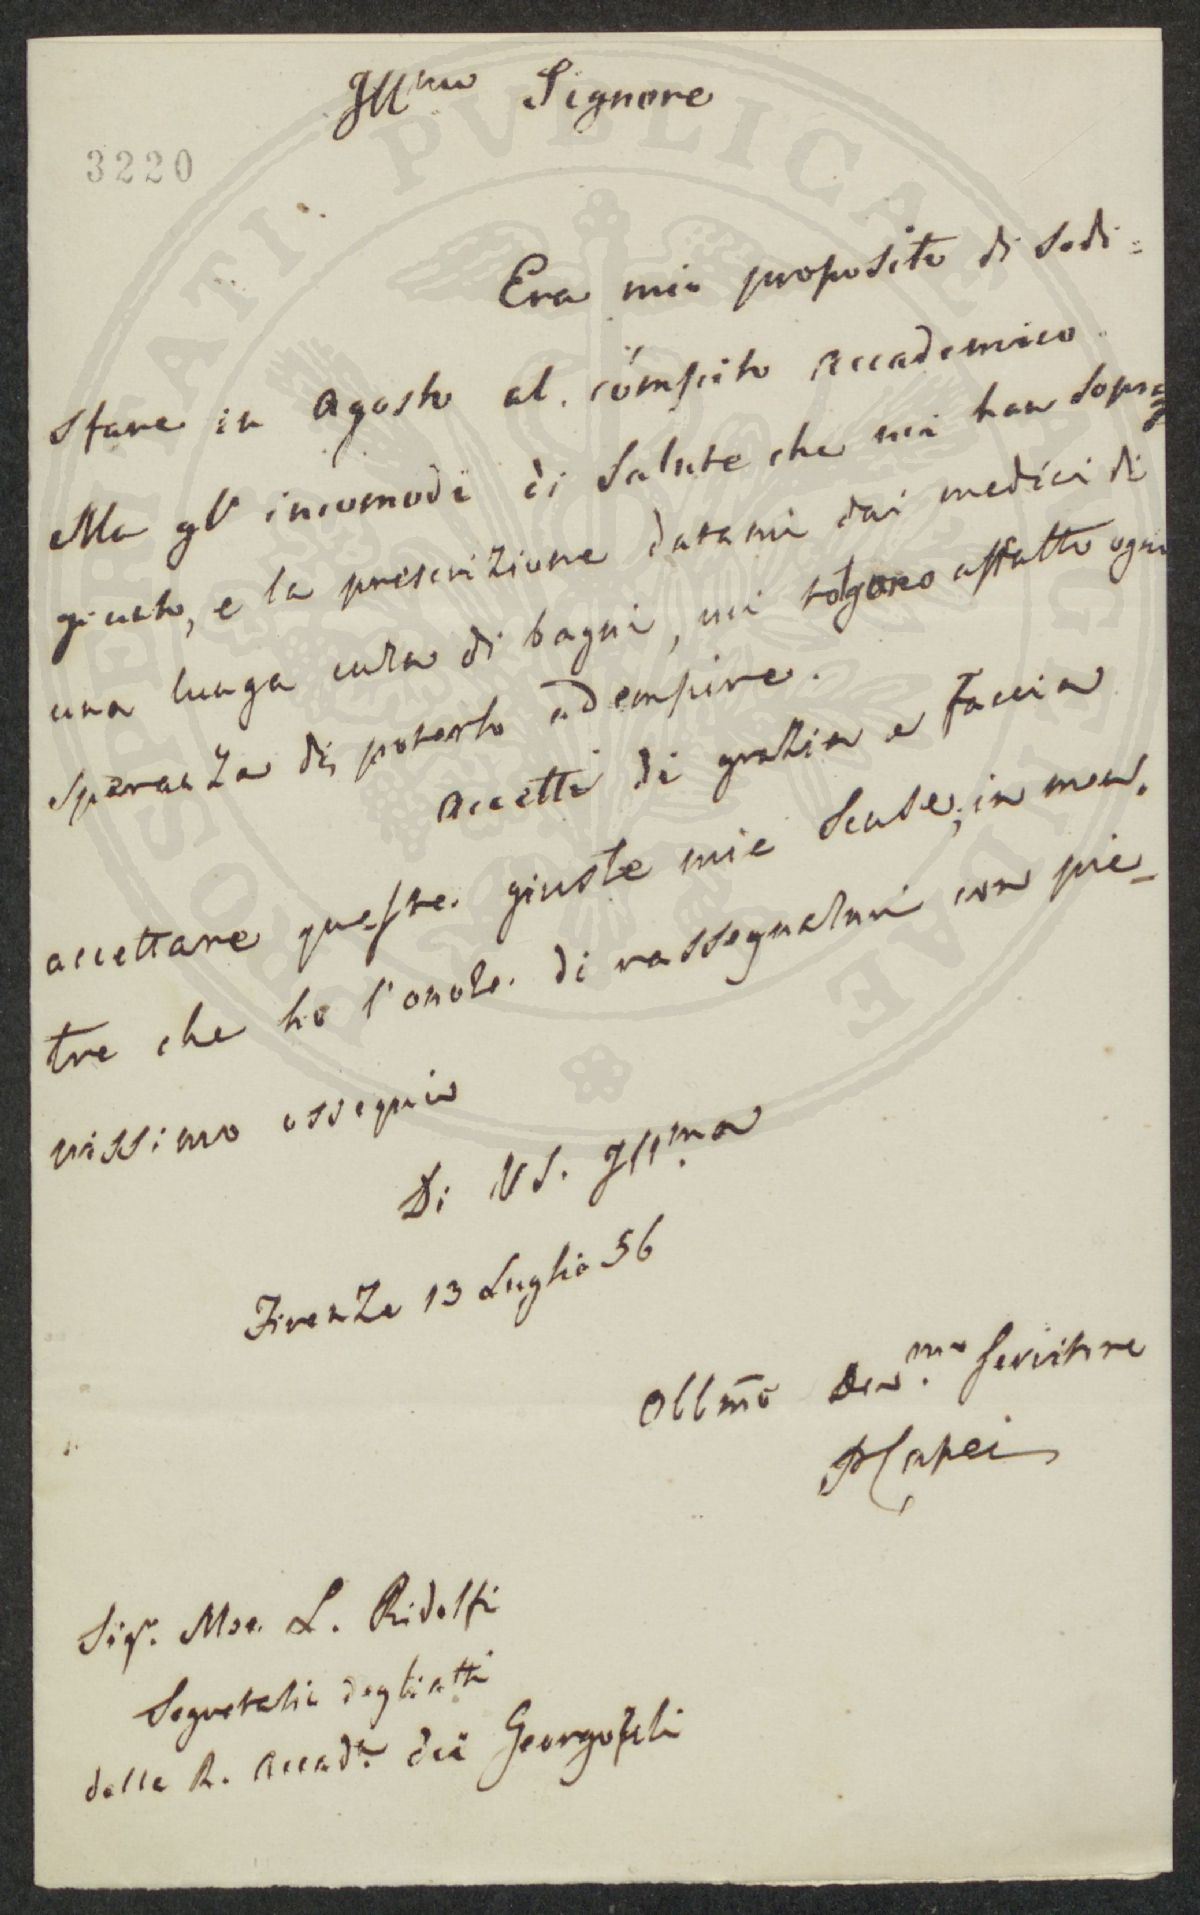 Ill.mo Signore
3220
Era mio proposito di sodi=
sfare in Agosto al compito Accademico.
Ma gl'incomodi di salute che mi han soprag=
giunto, e la prescrizione datami dai medici di
una lunga cura di bagni, mi tolgono affatto ogni
speranza di poterlo adempire.
Accetti di grazia e faccia
accettare queste giuste mie scuse, in men=
tre che ho l'onore di rassegnarmi con pie=
nissimo ossequio
Di VS. Ill.ma
Firenze 13 Luglio 56
Obbmo Dev.mo Servitore
P Capei
Sigr. Mse. L. Ridolfi
Segretario degli atti
della R. Accad.a dei Georgofili
PROSPERITATI PVBLICAE AVGENDAE